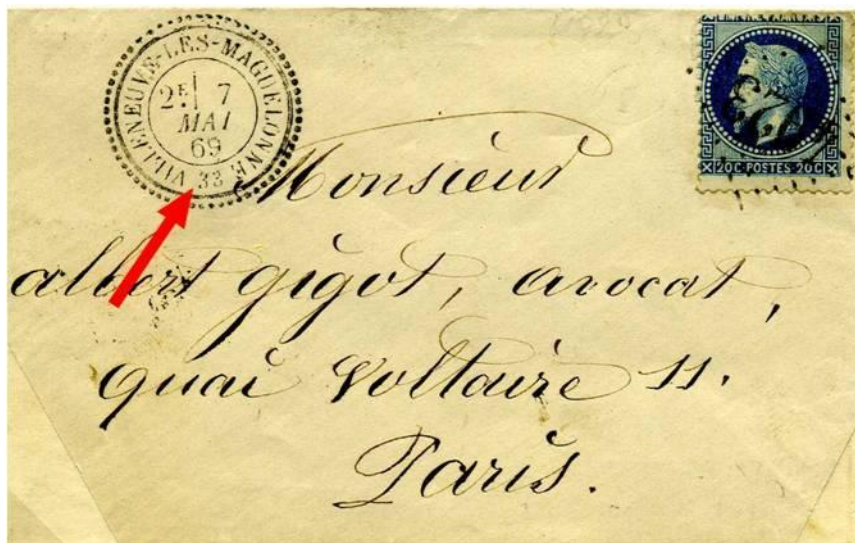 VILLENEUVE-LES-MAGUELONNE
2E 7
MAI
69
33
20C·POSTES·20C
Monsieur
albert gigot, avocat,
quai Voltaire 11.
Paris.